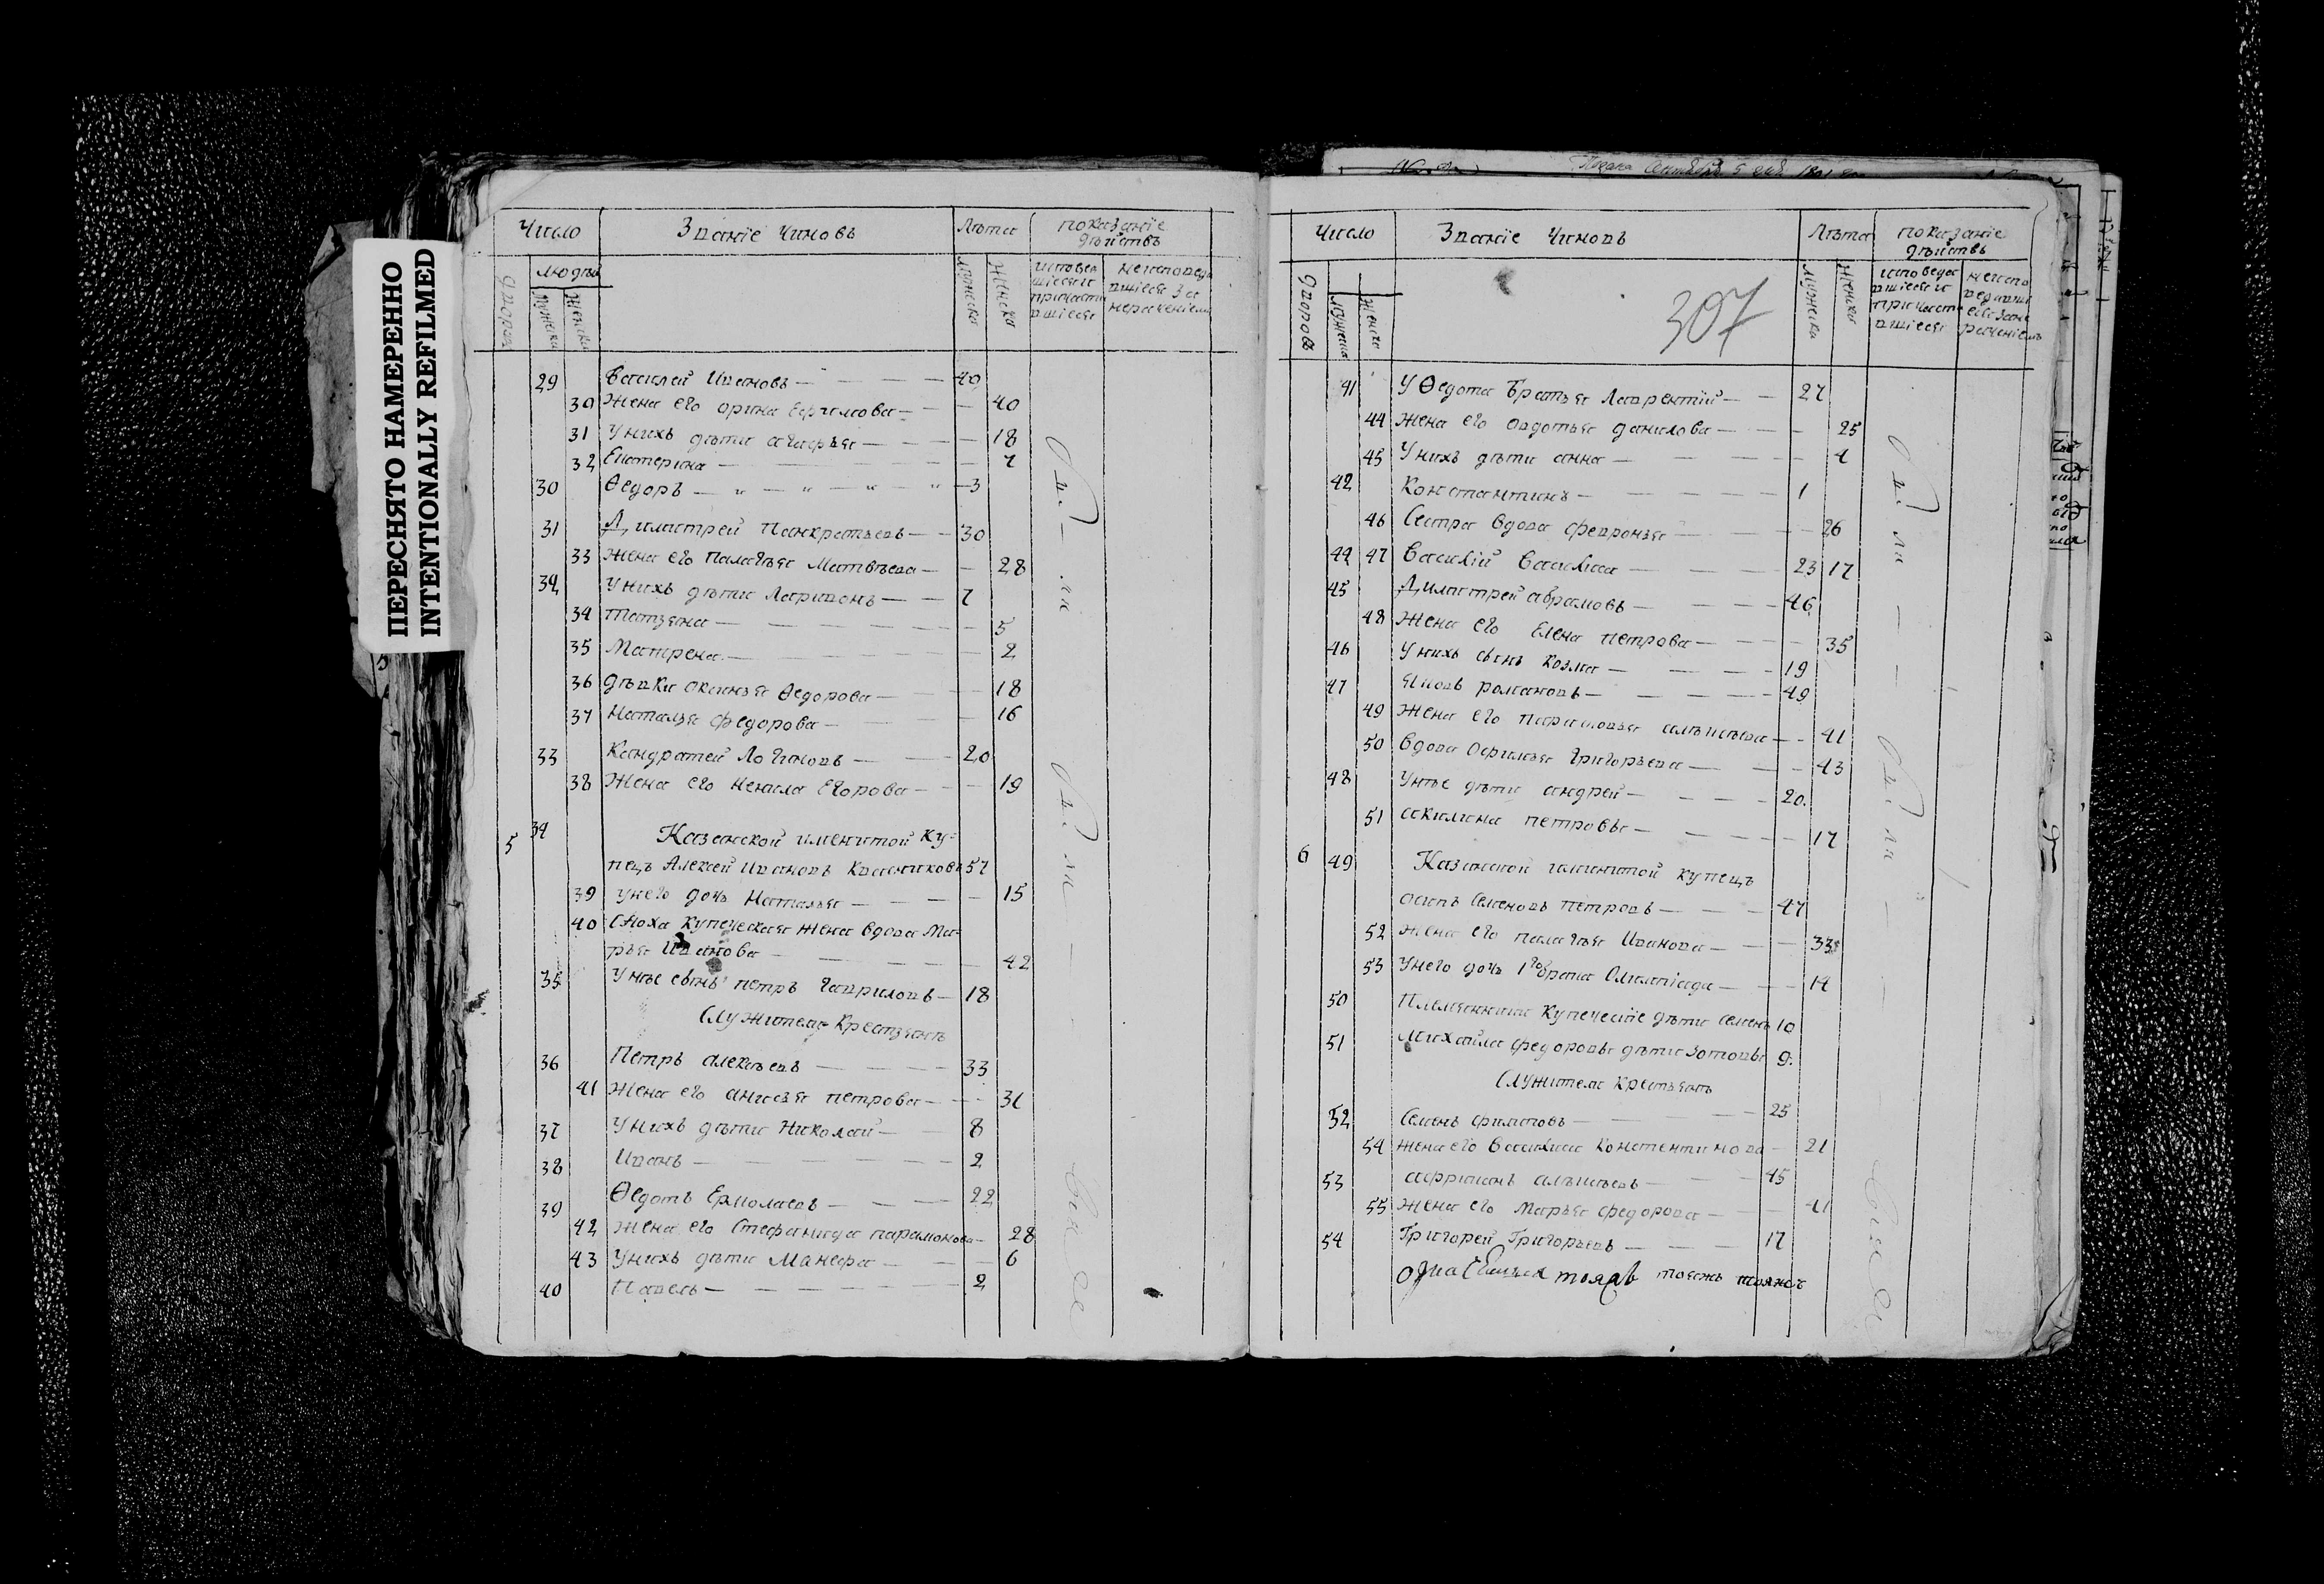 ПЕРЕСНЯТО НАМЕРЕННО
INTENTIONALLY REFILMED
Число Званіе Чиновъ Лѣта показаніе дѣйствъ
29 Василей Ивановъ 40
30 Жена его орина Ефимова 40
31 Унихъ дѣти агафья 18
32 Екатерина 7
30 Ѳедоръ 3
31 Дмитрей Панкратьевъ 30
33 Жена его Палагѣя Матвѣева 28
32 Унихъ дѣти Ларивонъ 7
34 Татзяна 5
35 Матрена 2
36 Дѣвки Ѳедорова 18
37 Наталья федорова 16
33 Кандратей Логиновъ 20
38 Жена его Ненила Егорова 19
5 34 Казанской именитой ку-
пецъ Алексей Ивановъ Квасниковъ 57
39 унего дочь Наталья 15
40 Сноха купеческая жена вдова Ма-
рья Иванова 42
35 Унѣе сынъ петръ Гавриловъ 18
Служители Крестьянъ
36 Петръ алексѣевъ 33
41 Жена его анисья петрова 31
37 Унихъ дѣти Николай 8
38 Иванъ 2
39 Ѳедотъ Ермолаевъ 22
42 Жена его Стефанида парамонова 28
43 Унихъ дѣти Манефа 6
40 Павелъ 2
Число Званіе Чиновъ Лѣта показаніе дѣйствъ
307
41 У Ѳедота братья Лаврентій 27
44 Жена его авдотья данилова 25
45 Унихъ дѣти анна 4
42 Константинъ 1
46 Сестра вдова февронья 26
44 47 Василій Василиса 23 17
45 Дмитрей абрамовъ 46
48 Жена его Елена петрова 35
46 Унихъ сынъ козма 19
47 Яковъ романовъ 49
49 Жена его парасковья алѣксѣева 41
50 вдова Афимья григорьева 43
48 Унѣе дѣти андрей 20
51 акилина петровы 17
6 49 Казанской именитой купецъ
осипъ Семеновъ петровъ 47
52 Жена его палагѣя Иванова 33
53 Унего дочь 1го брака Олимпіада 14
50 Племянники Купеческіе дѣти Семенъ 10
51 Михайла федоровы дѣти Зотовы 9
Служители Крестьянъ
52 Семенъ филиповъ 25
54 Жена его Василиса Константинова 21
53 алѣксѣевъ 45
55 Жена его Марья федорова 41
54 Григорей Григорьевъ 17